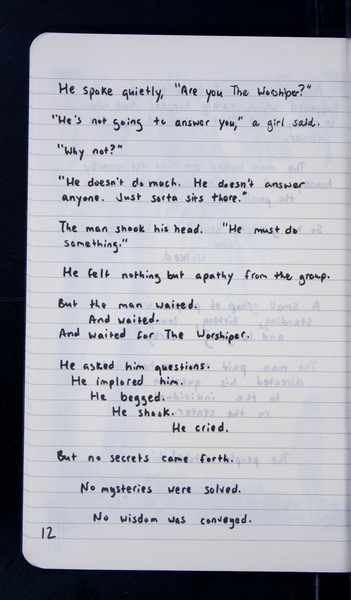 He spoke quietly, "Are you The Worshiper?"
"He's not going to answer you," a girl said.
"Why not?"
"He doesn't do much. He doesn't answer
anyone. Just sorta sits there."
The man shook his head. "He must do
something."
He felt nothing but apathy from the group.
But the man waited.
And waited.
And waited for The Worshiper.
He asked him questions.
He implored him.
He begged.
He shook.
He cried.
But no secrets came forth.
No mysteries were solved.
No wisdom was conveyed.
12